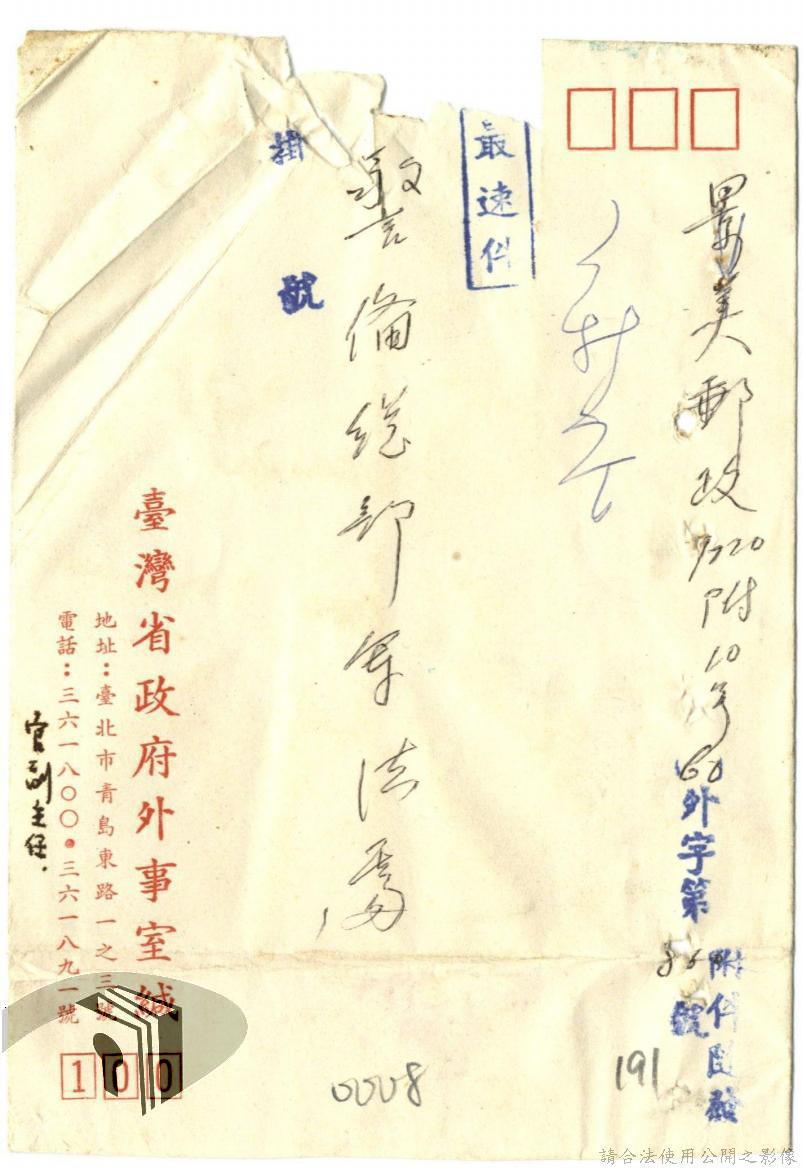 景美郵政9220附10号
60外字第
號
附件
最速件
警備總部軍法處
掛號
臺灣省政府外事室緘
地址：臺北市青島東路一之三號
電話：三六一八〇〇•三六一八九一號
官副主任.
100
0008
191
請合法使用公開之影像